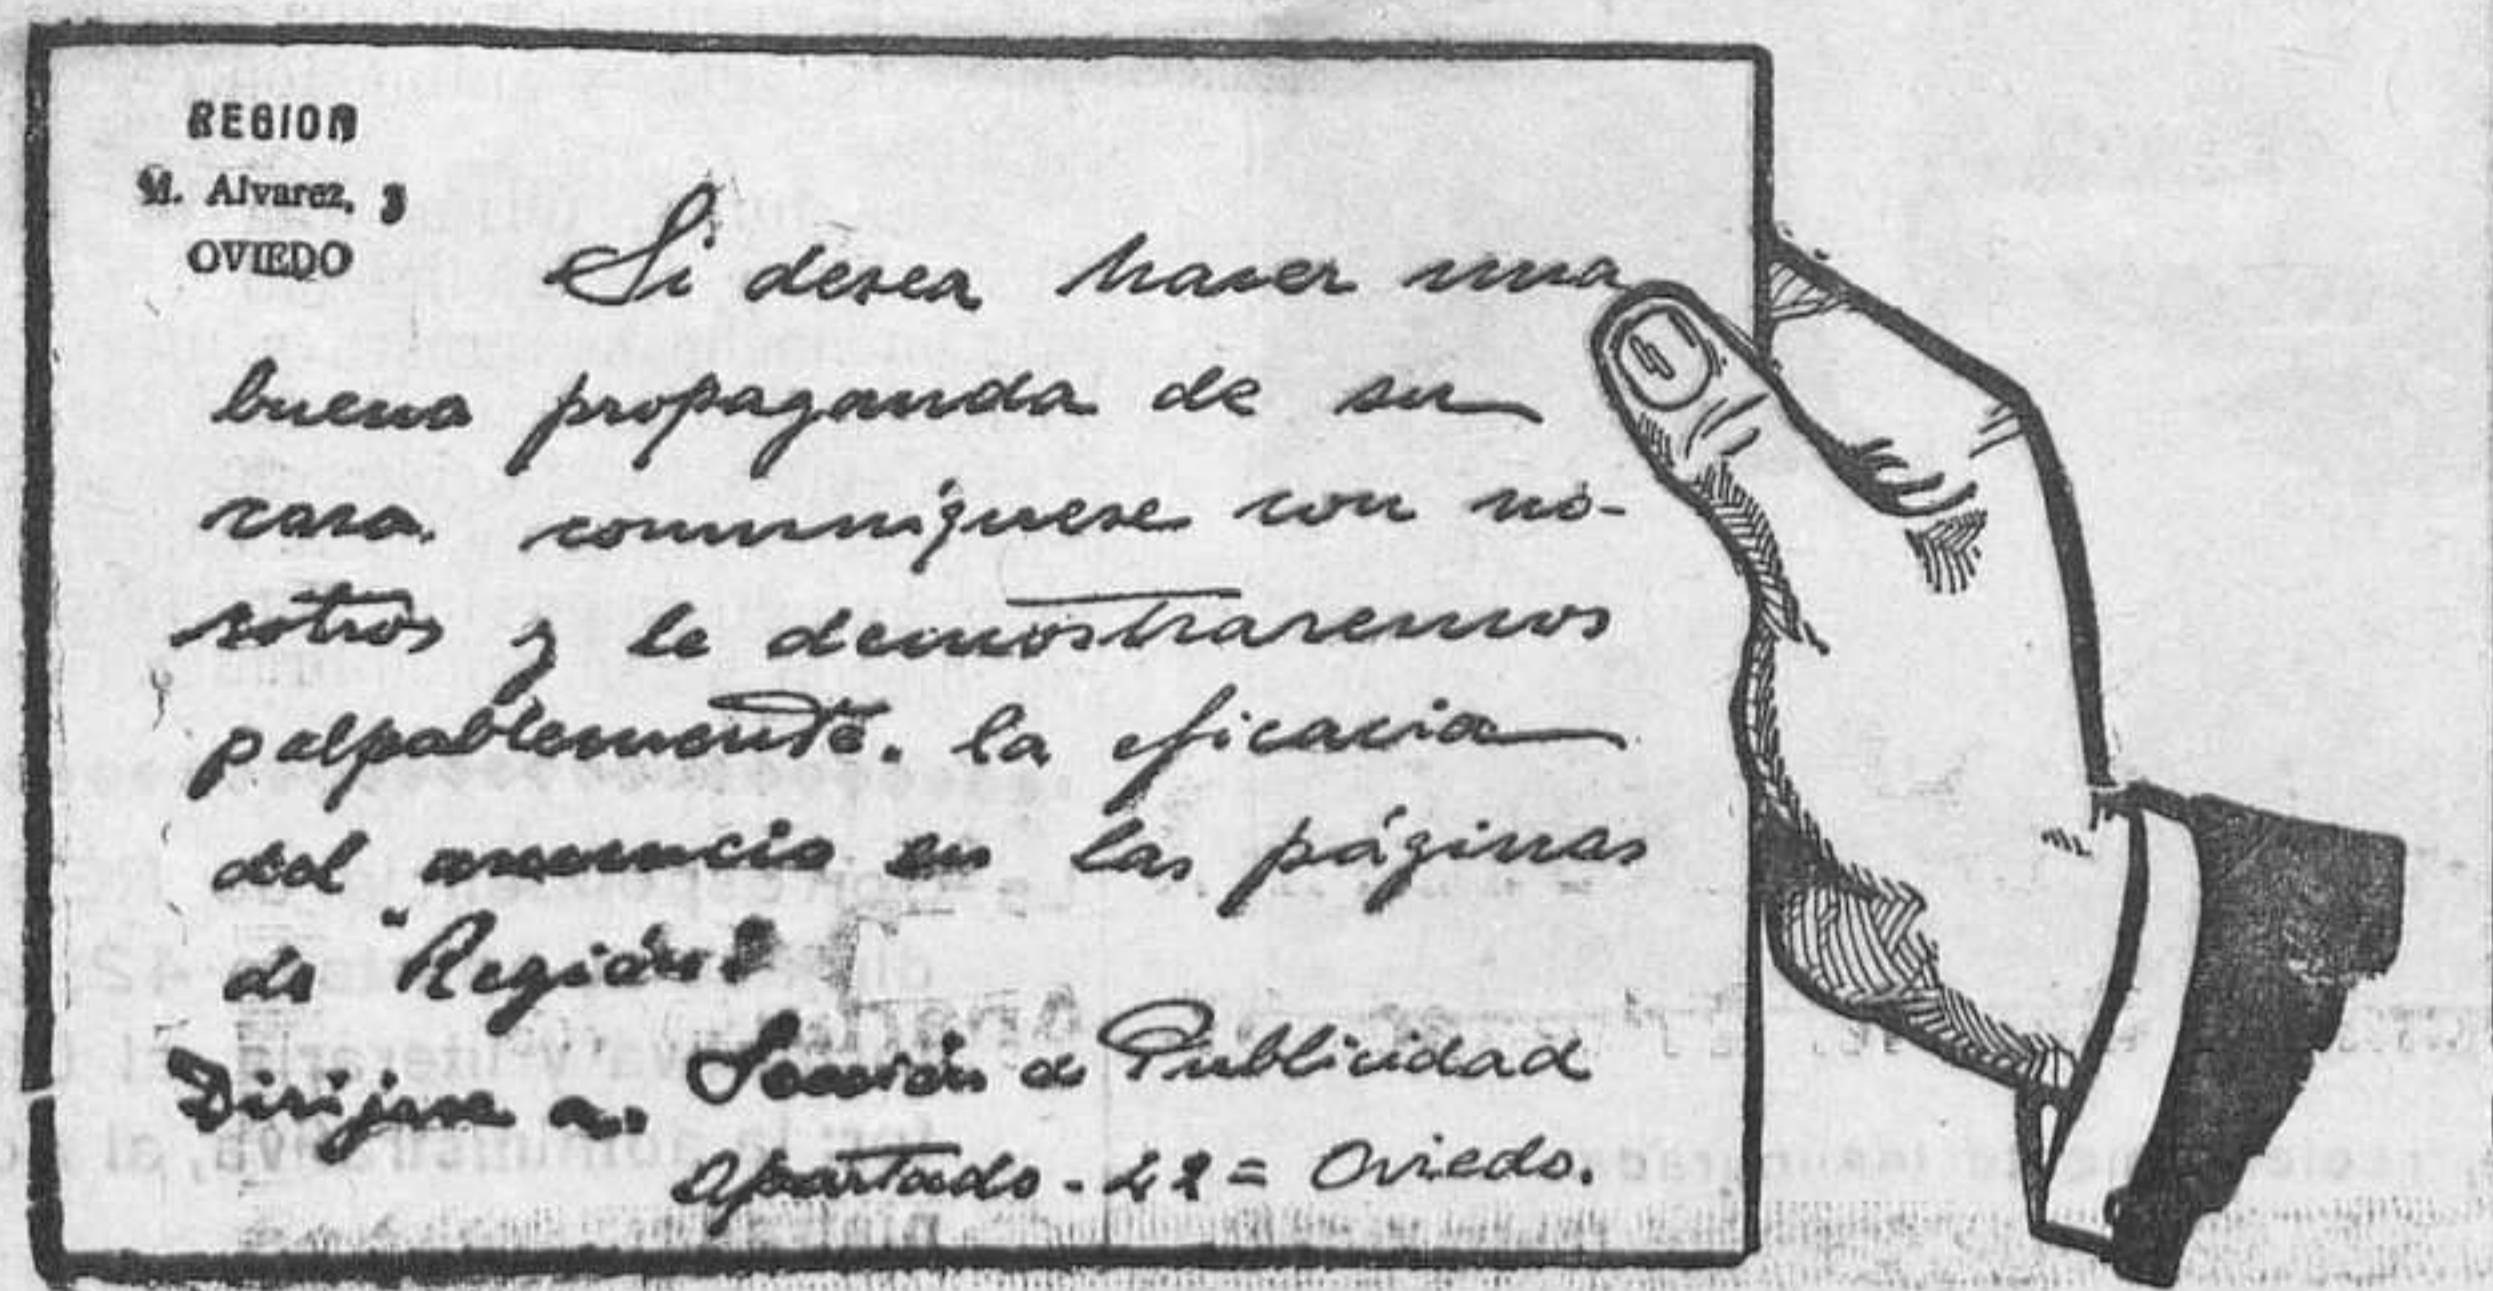 REGION
M. Alvarez, 3
OVIEDO
Si desea hacer una
buena propaganda de su
casa. comuníquese con no-
sotros y le demostraremos
palpablemente. la eficacia
del anuncio en las páginas
de "Región"
Dirijase a. Sección de Publicidad
Apartado - 42 = Oviedo.